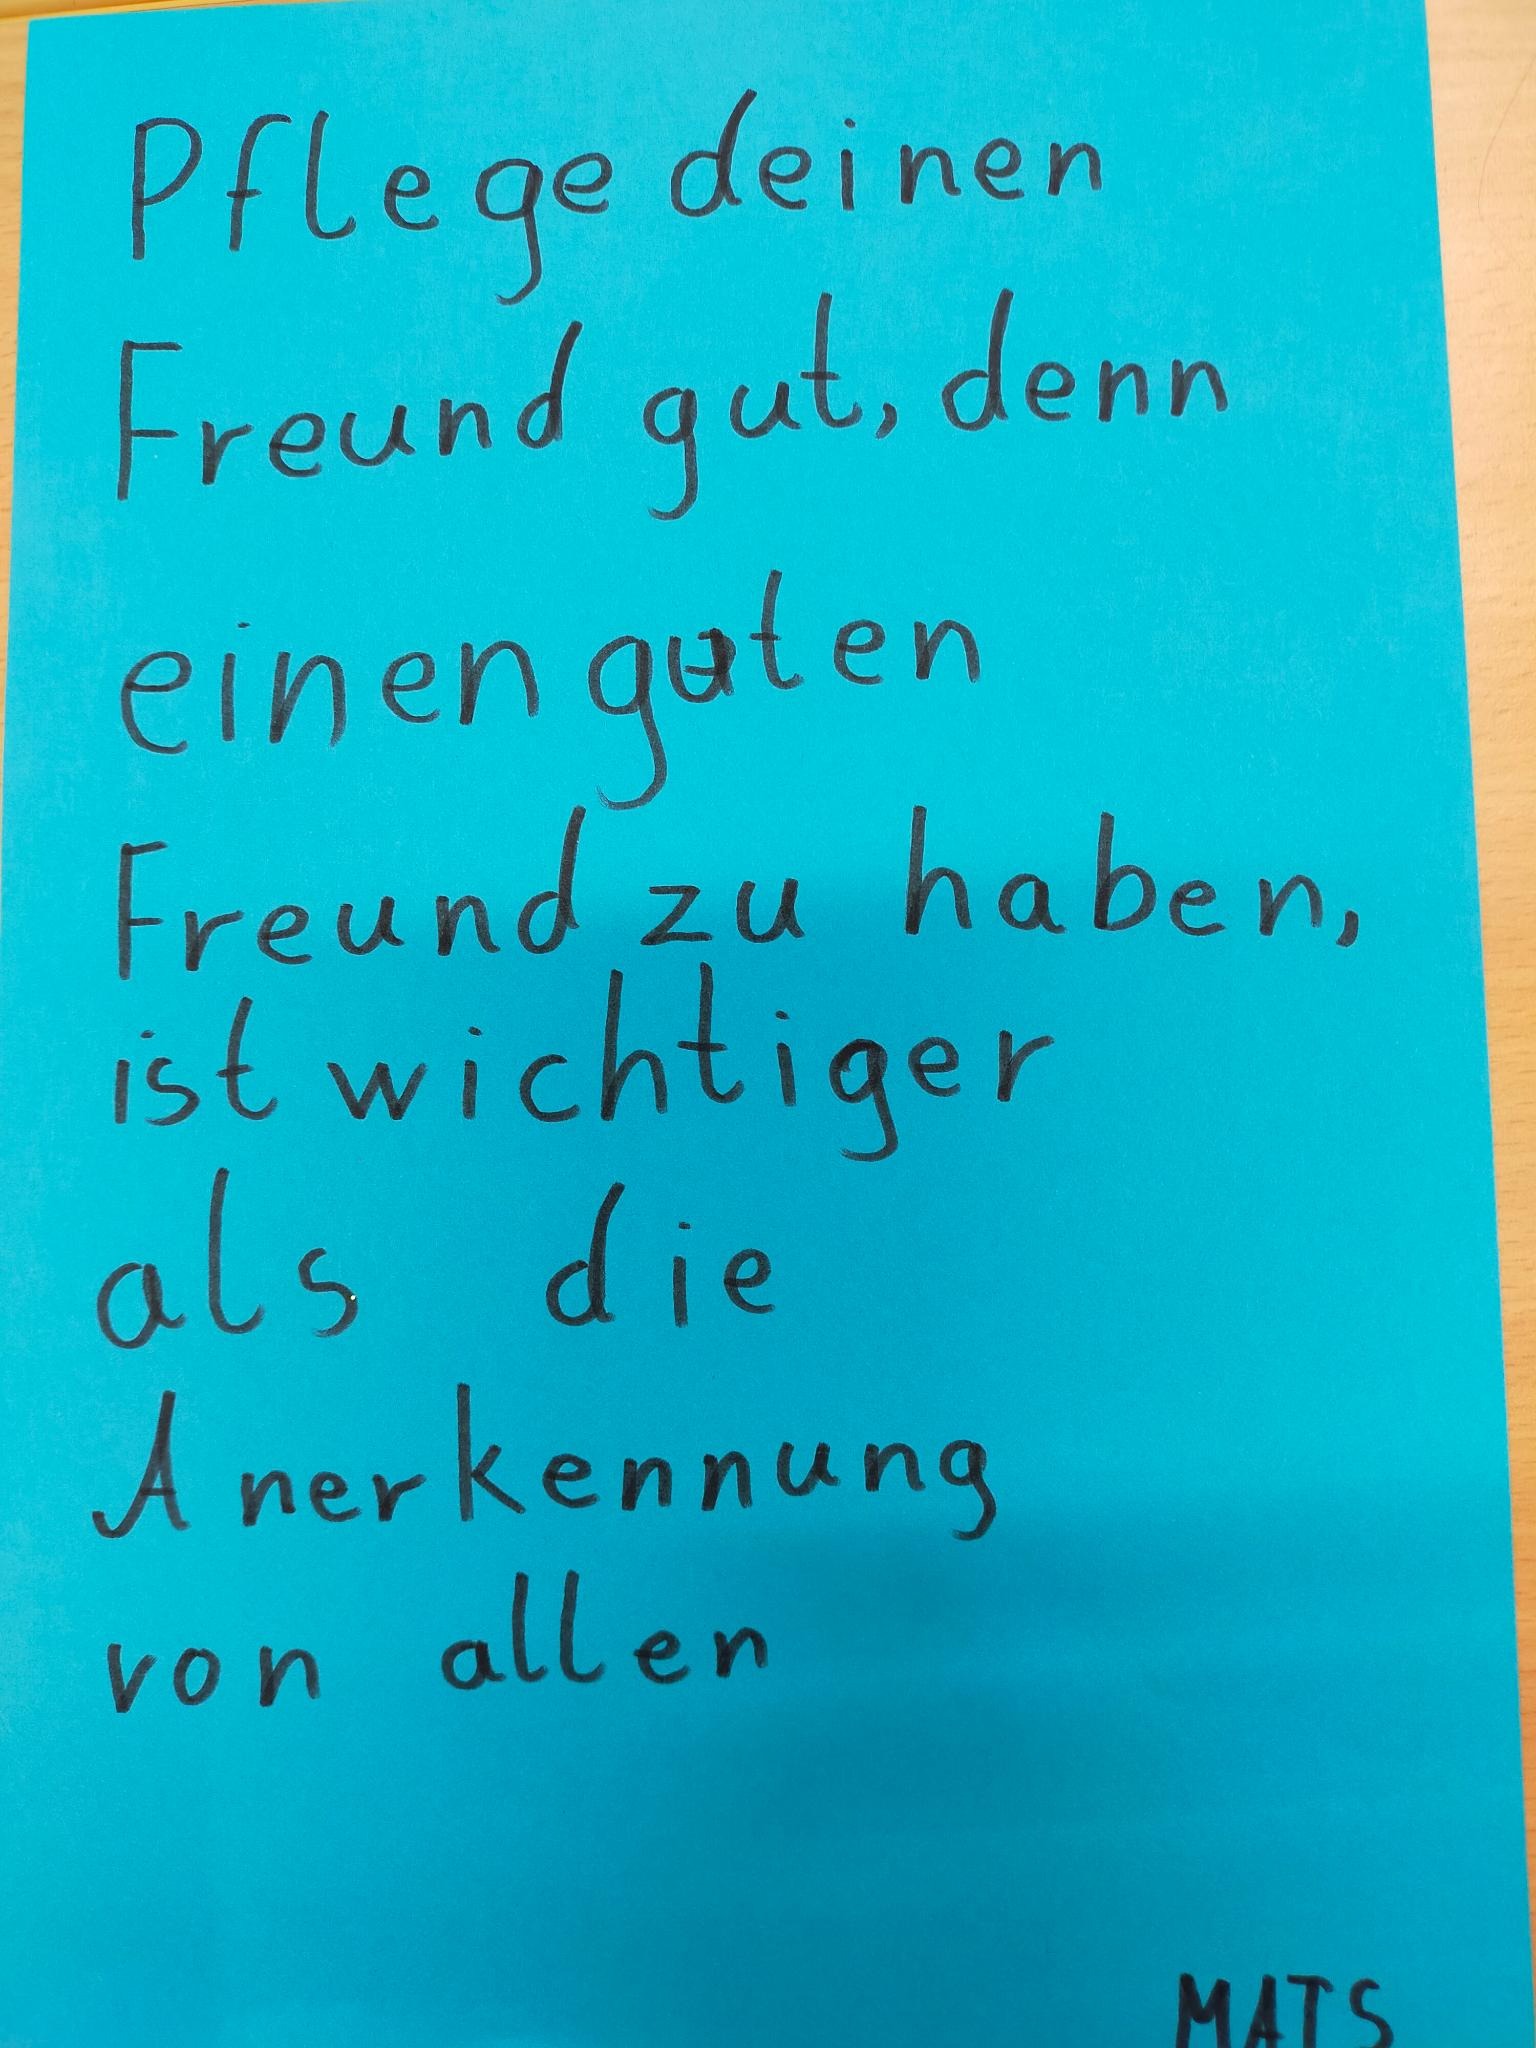 Pflege deinen
Freund gut, denn
einen guten
Freund zu haben,
ist wichtiger
als die
Anerkennung
von allen
MATS